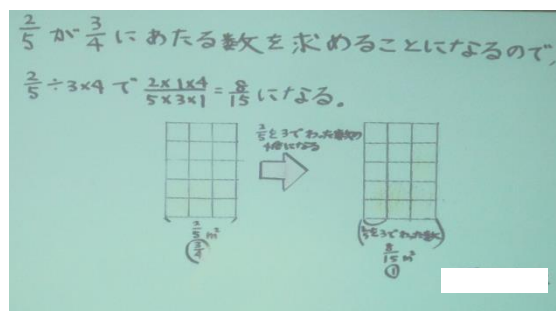 2/5が3/4にあたる数を求めることになるので、
2/5÷3×4で 2×1×4/5×3×1=8/15になる。
2/5を3でわった数の
4倍になる
2/5 m²
3/4
(2/5を3でわった数)
8/15 m²
①